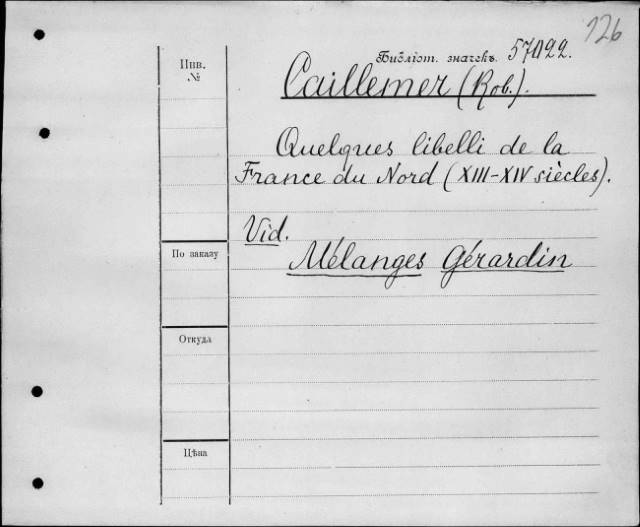 126
Библіот. значекъ.
Инв. №
Caillemer (Rob.).
Quelques libelli de la
France du Nord (XIII-XIV siècles).
Vid.
Mélanges Gérardin
По заказу
Откуда
Цѣна